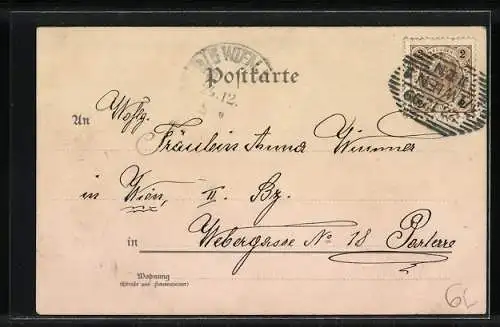 WIEN
2
Postkarte
12.
An Wohlg.
Fräulein Anna Wimmer
in Wien, II. Bz.
in Webergasse No 18 Parterre
Wohnung
(Straße und Hausnummer)